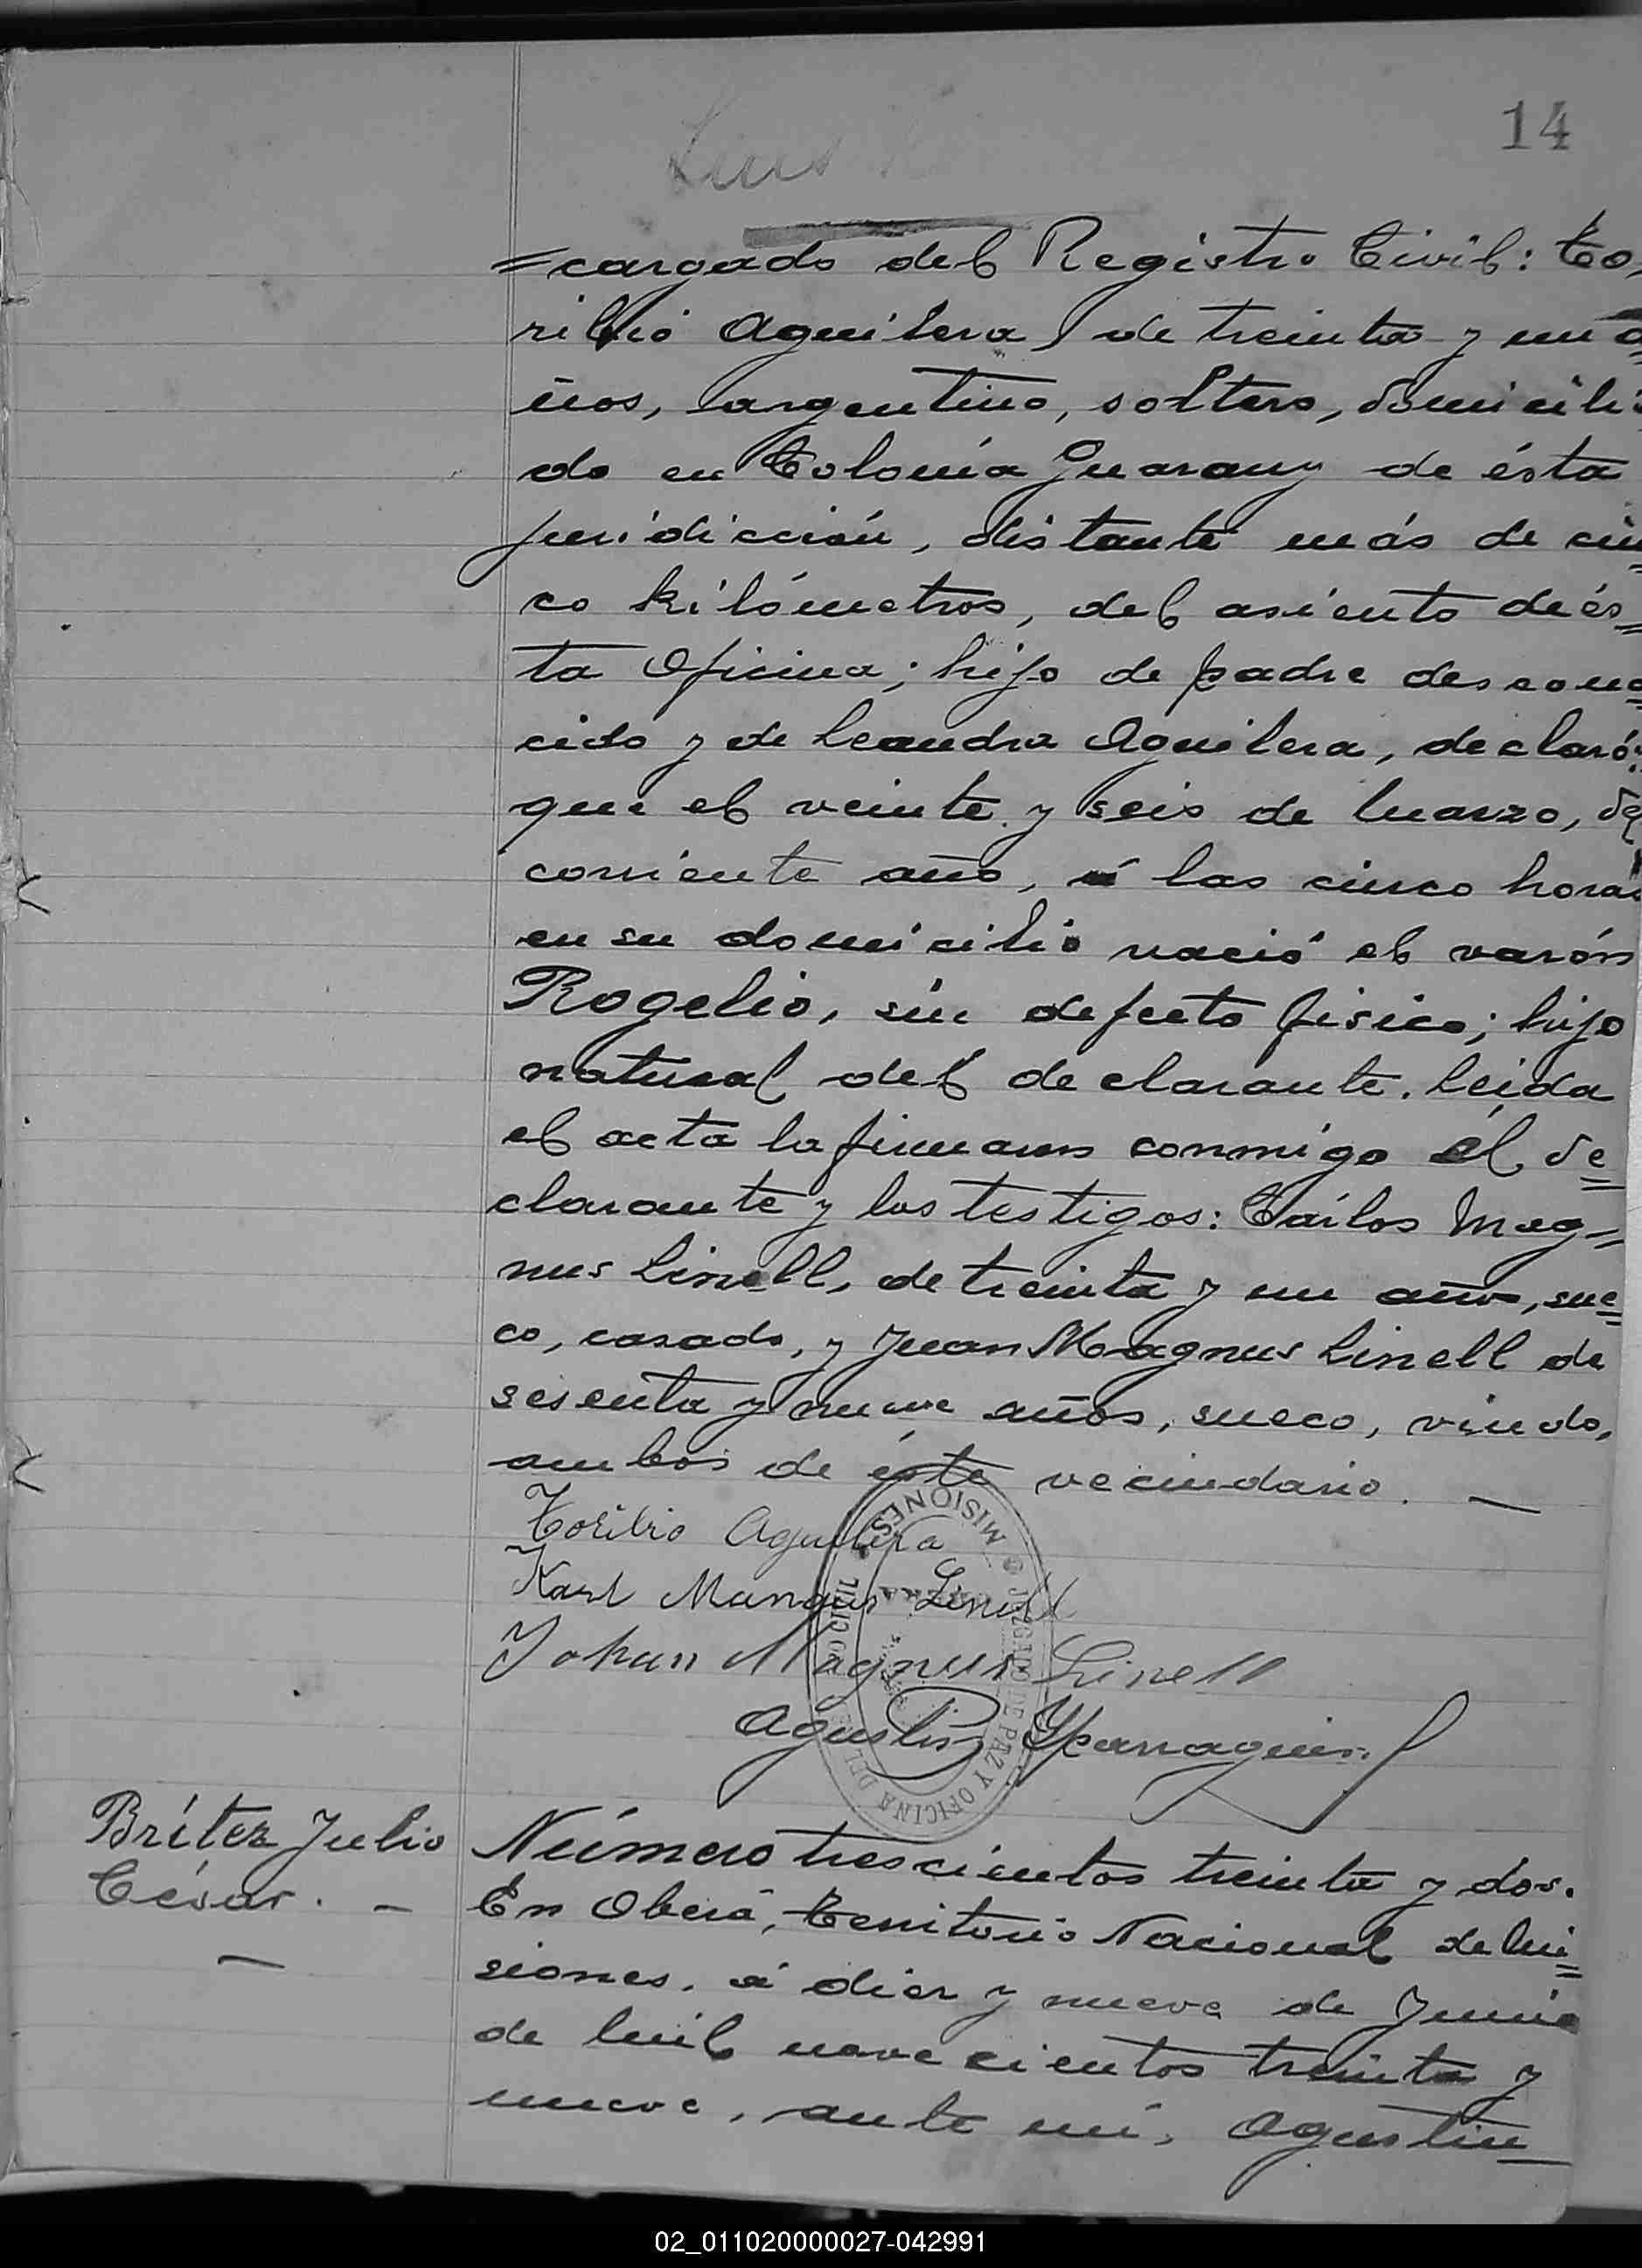 14
Luis
=cargado del Registro Civil: To,
ribio Aguilera, de treinta y un a=
ños, argentino, soltero, domicilia
do en Colonia Guarany de ésta
juridicción, distante más de cin=
co kilómetros, del asiento de és=
ta Oficina; hijo de padre descono=
cido y de Leandra Aguilera, declaró:
que el veinte y seis de Marzo, del
corriente año, á las cinco horas
en su domicilio nació el varón
Rogelio, sin defecto fisico; hijo
natural del declarante. Leída
el acta la firmaron conmigo él de=
clarante y los testigos: Cárlos Mag=
nus Linell, de treinta y un años, sue=
co, casado, y Juan Magnus Linell de
sesenta y nueve años, sueco, viudo,
ambos de éste vecindario. —
Toribio Aguilera
Karl Mangus Linell
Johan Magnus Linell
Agustin Yparraguirre
JUZGADO DE PAZ Y OFICINA DEL REGISTRO CIVIL
MISIONES
Brítez Julio
César. —
Número trescientos treinta y dos.
En Oberá, Territorio Nacional de Mi=
siones, á diez y nueve de Junio
de mil novecientos treinta y
nueve, ante mí, Agustin
02_011020000027-042991